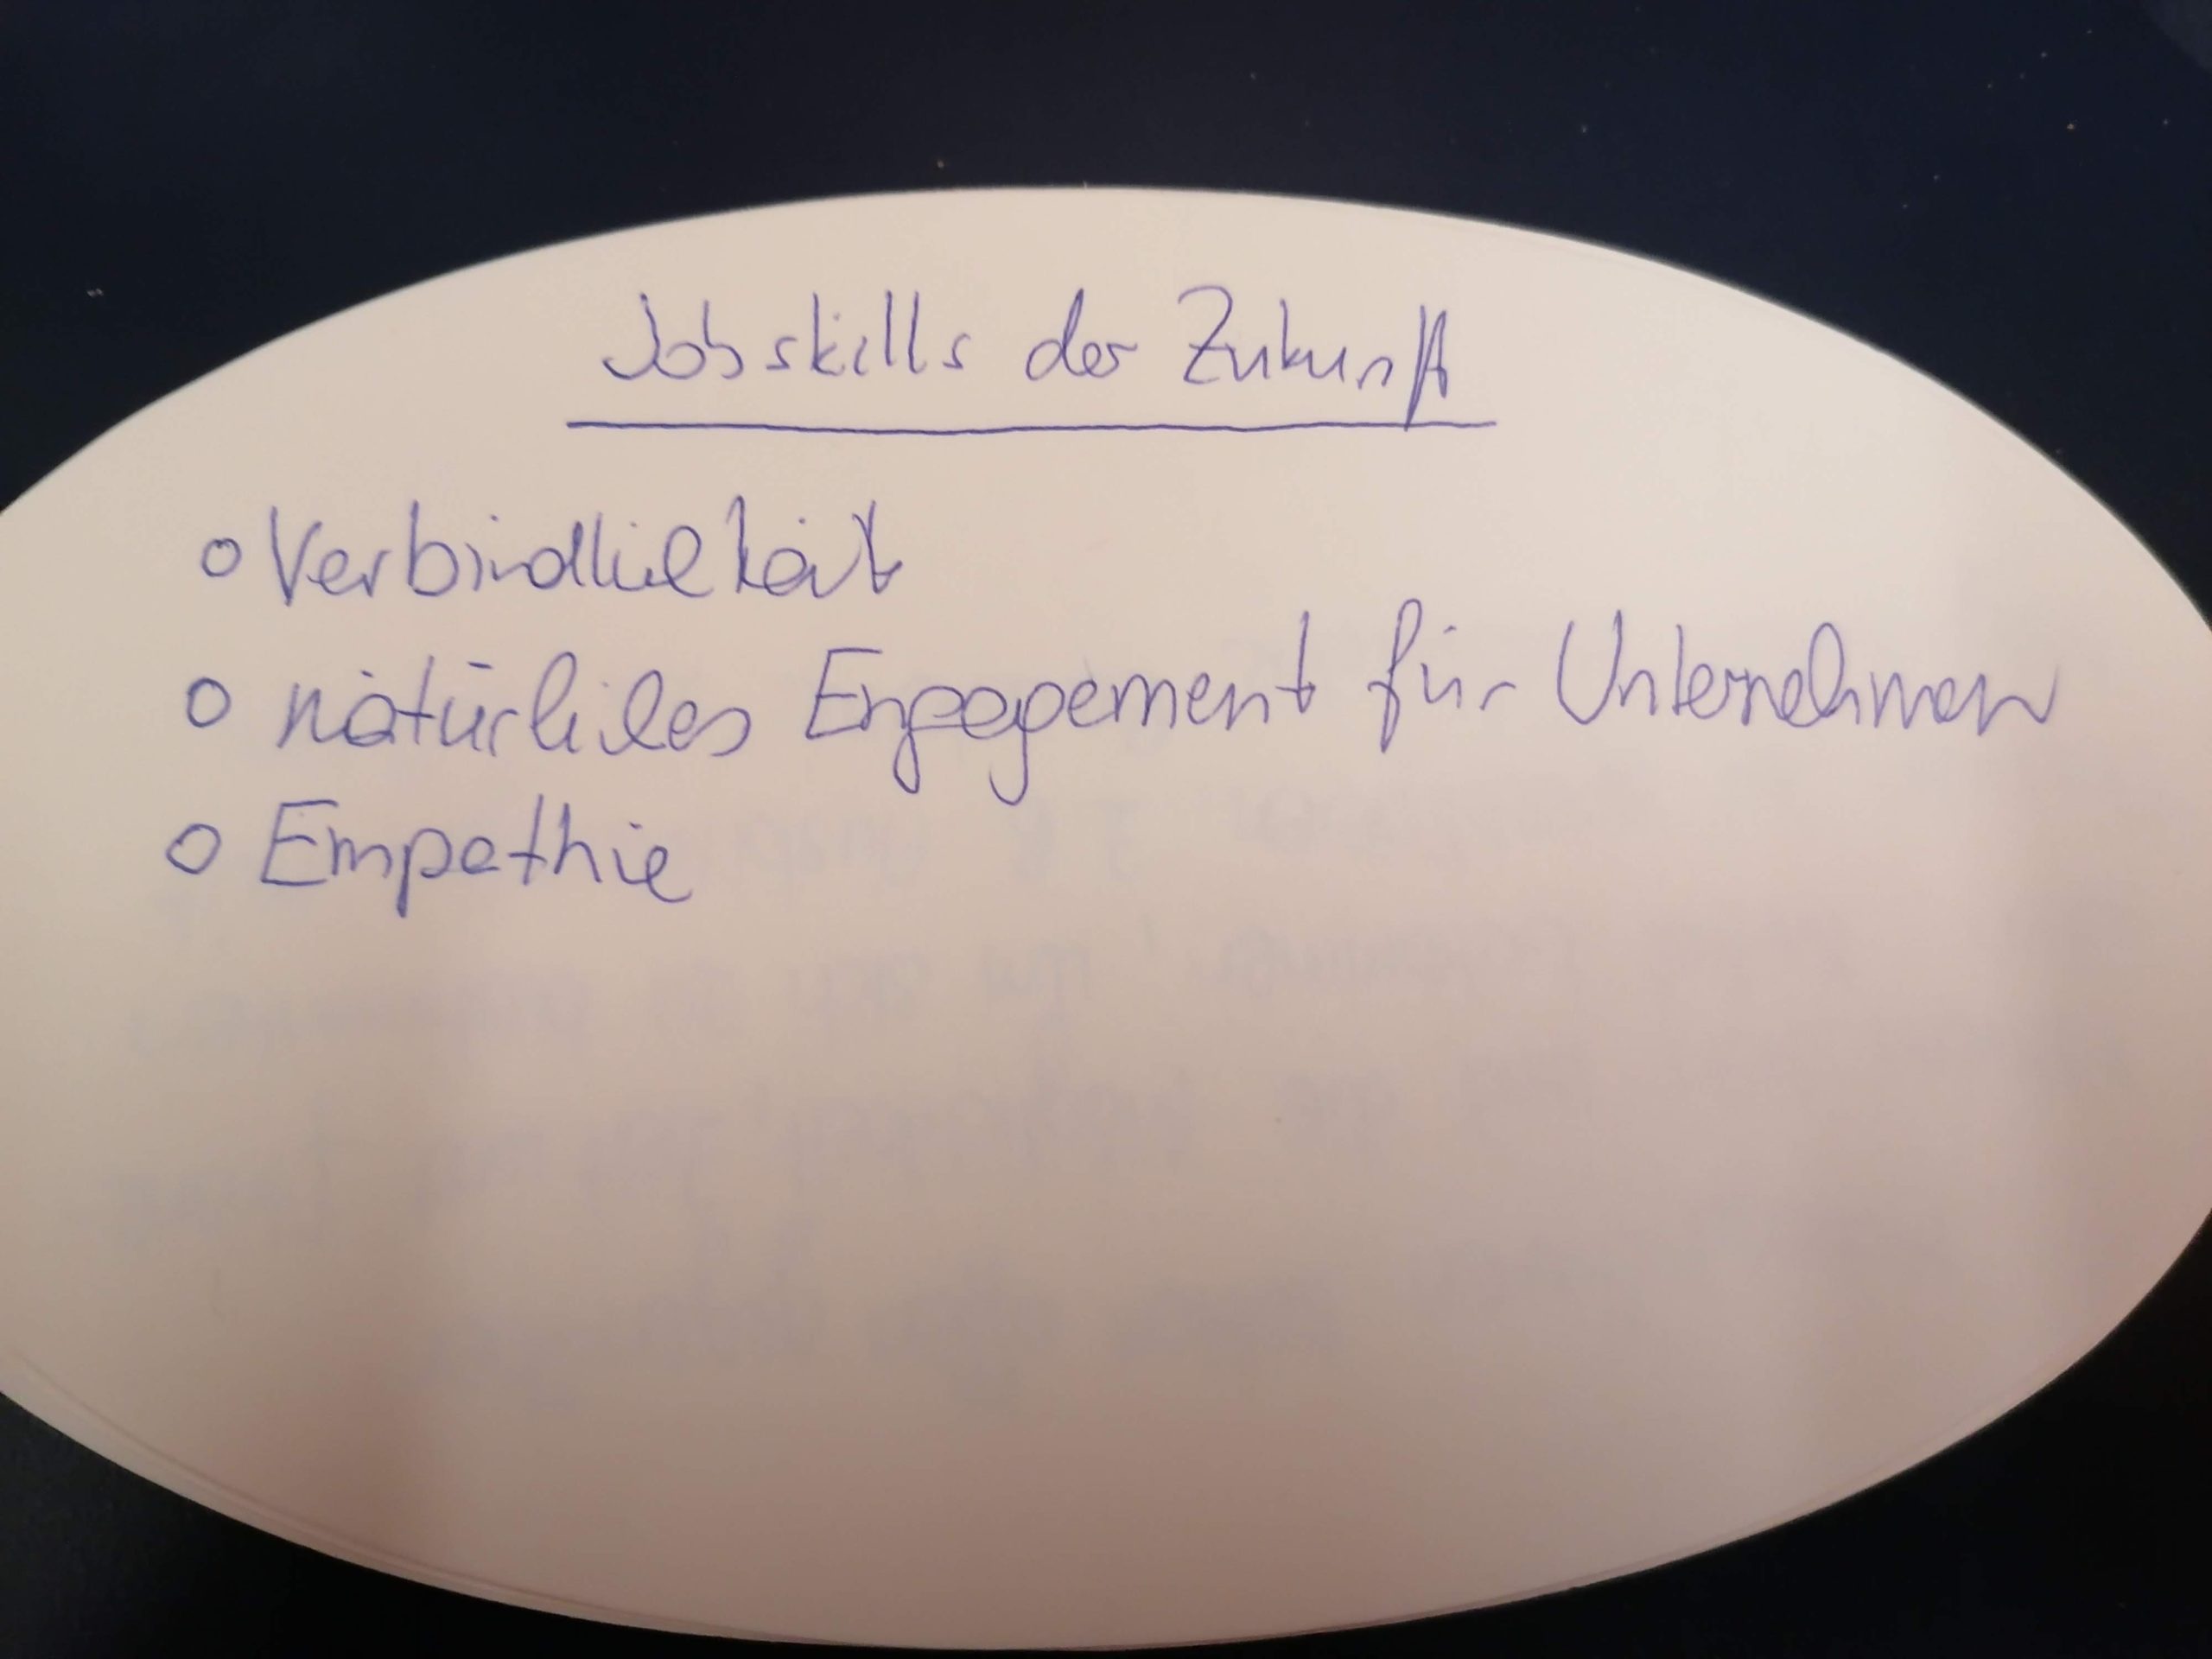 Jobskills der Zukunft
o Verbindlichkeit
o natürliches Engagement für Unternehmen
o Empathie